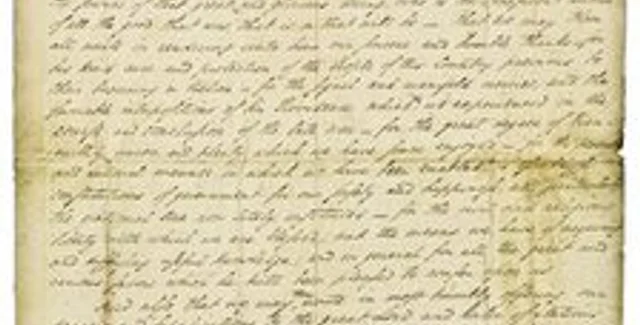 the service of that great and glorious Being, who is the beneficent author
of all the good that was, that is, or that will be – That we may then
all unite in rendering unto him our sincere and humble thanks – for
his kind care and protection of the People of this Country previous to
their becoming a Nation – for the signal and manifold mercies, and the
favorable interpositions of his Providence, which we experienced in the
course and conclusion of the late war – for the great degree of tran-
quility, union, and plenty, which we have since enjoyed – for the peaceable
and rational manner in which we have been enabled to establish
constitutions of government for our safety and happiness, and particularly
the national One now lately instituted – for the civil and religious
liberty with which we are blessed, and the means we have of acquiring
and diffusing useful knowledge; and in general for all the great and
various favors which he hath been pleased to confer upon us
And also that we may then unite in most humbly offering our
prayers and supplications to the great Lord and Ruler of Nations